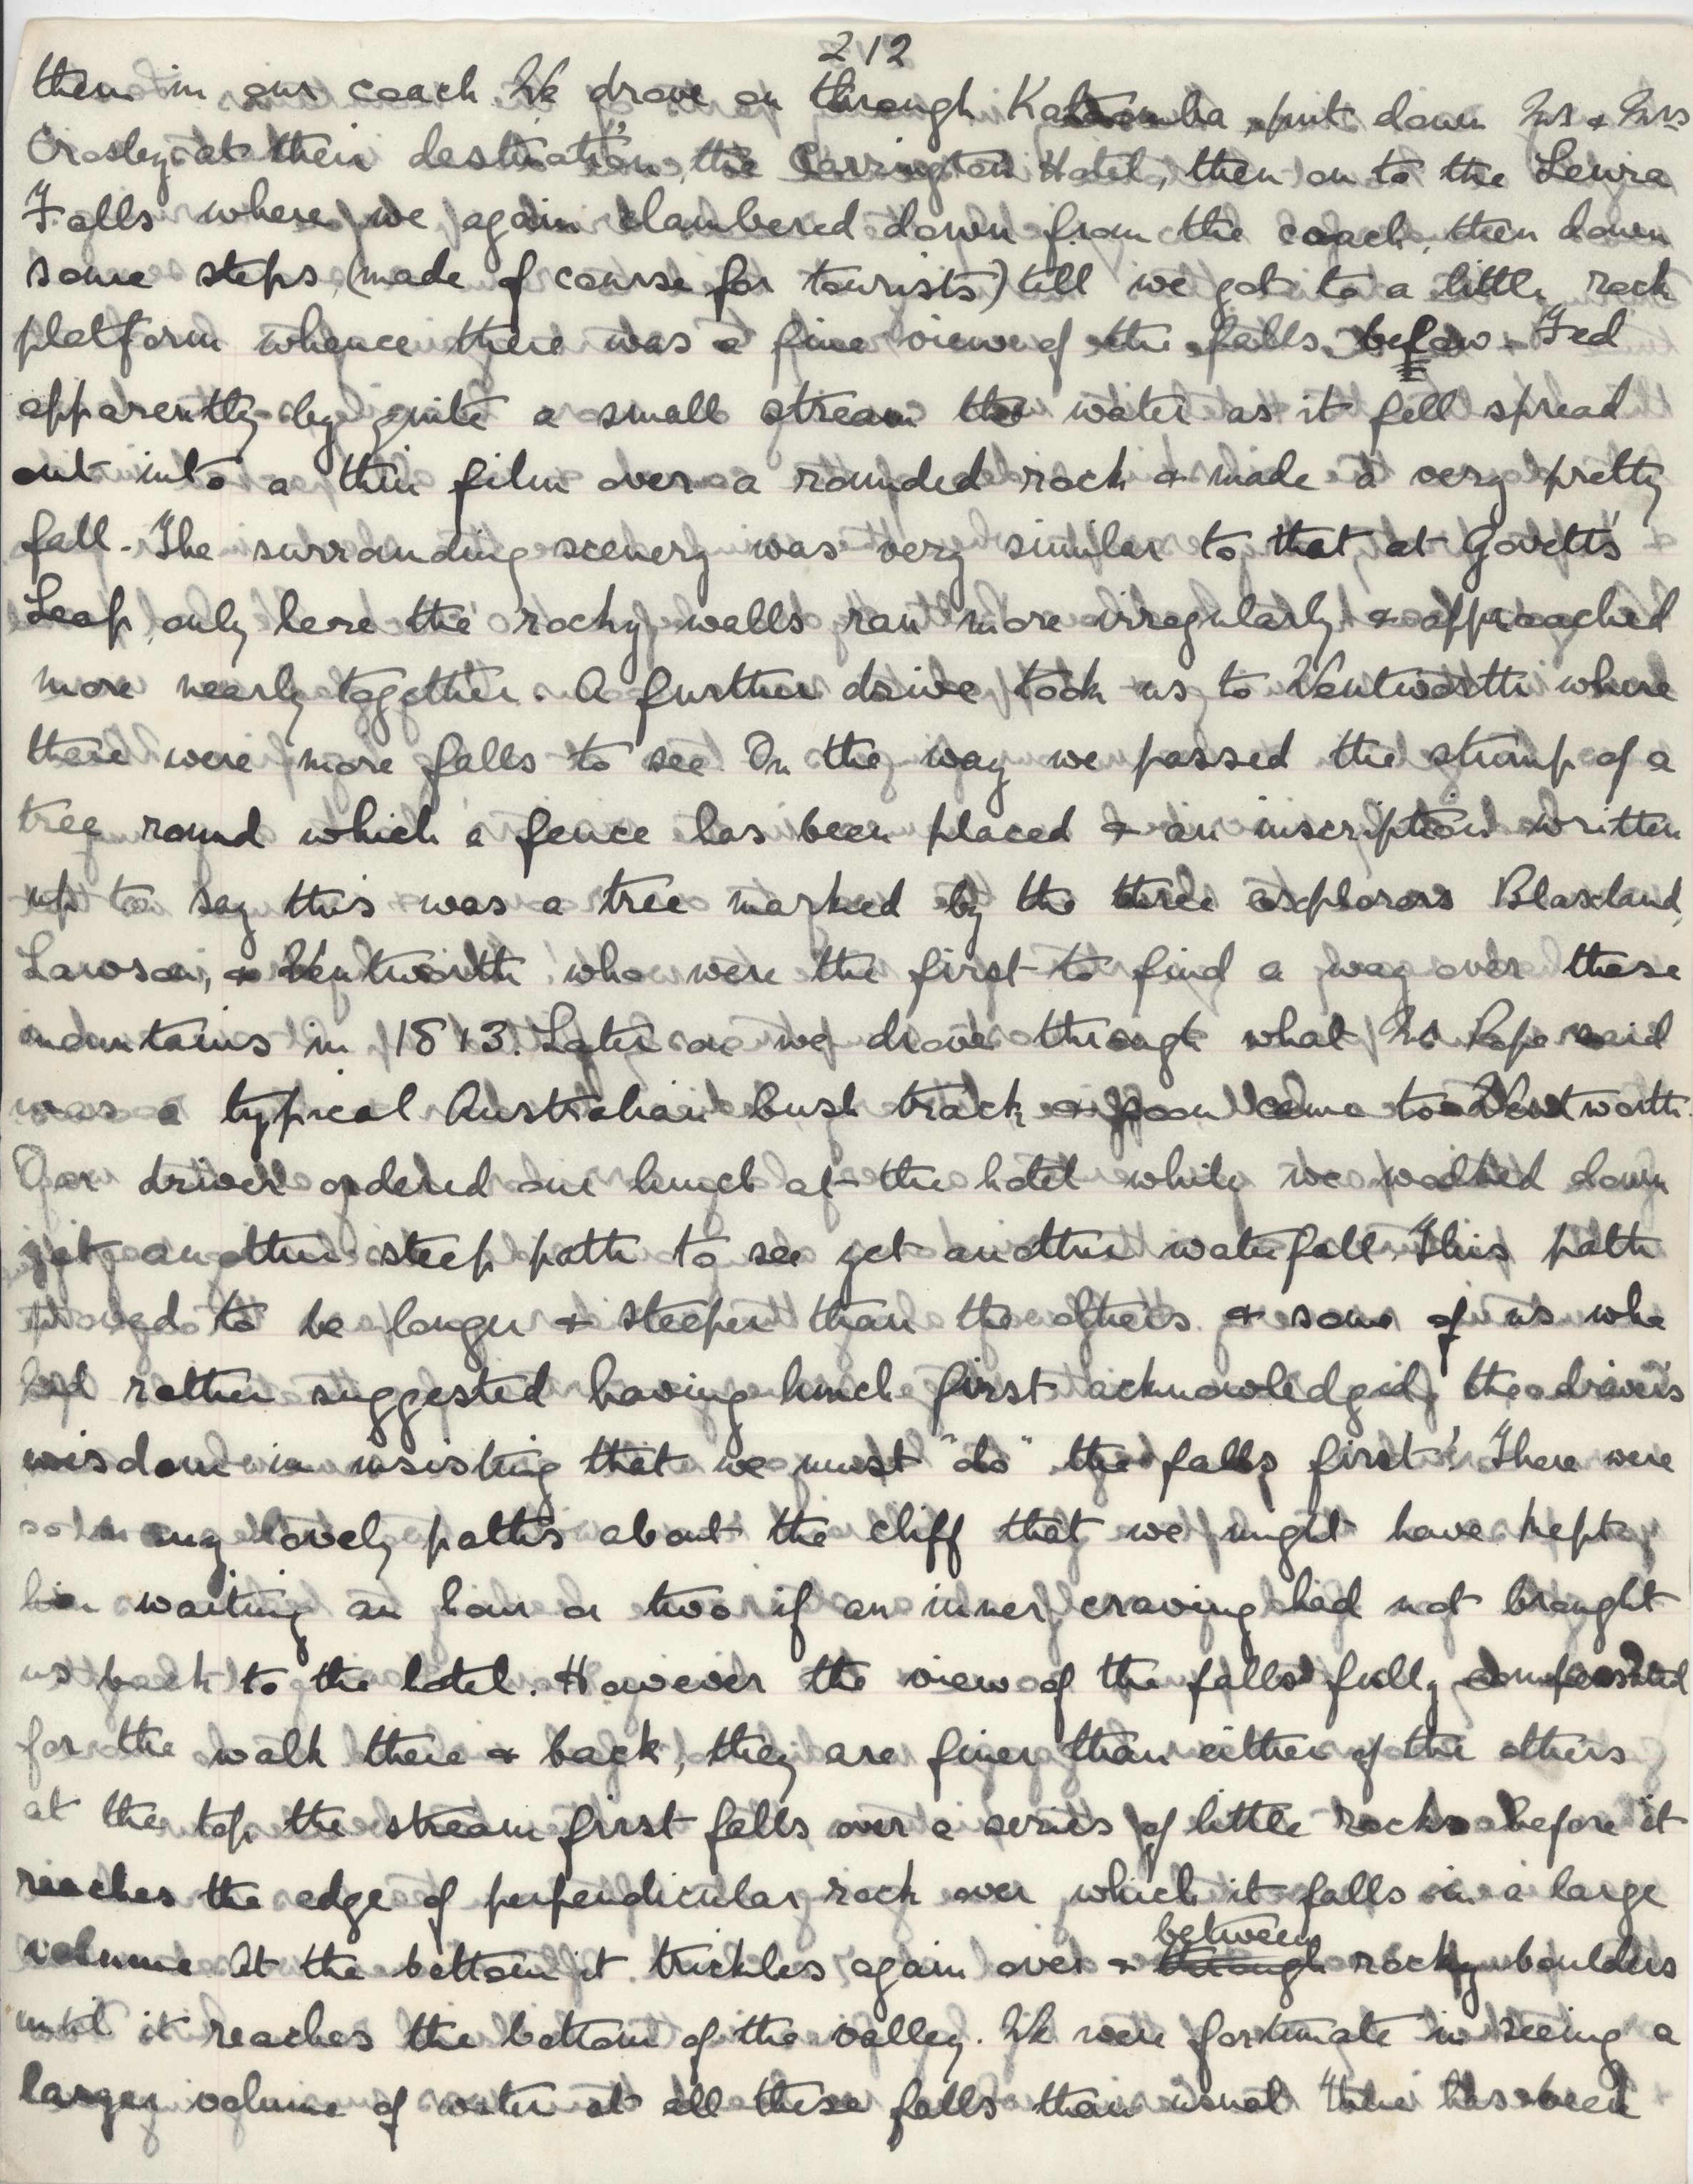 212
them in our coach. We drove on through Katoomba, put down Mr & Mrs
Crosley at their destination, the Carrington Hotel, then on to the Leura
Falls where we again clambered down from the coach, then down
some steps, (made of course for tourists) till we got to a little rock
platform whence there was a fine view of the falls below. Fed
apparently by quite a small stream the water as it fell spread
out into a thin film over a rounded rock & made a very pretty
fall. The surrounding scenery was very similar to that at Govett's
Leap, only here the rocky walls ran more irregularly & approached
more nearly together. A further drive took us to Wentworth where
there were more falls to see. On the way we passed the stump of a
tree round which a fence has been placed & an inscription written
up to say this was a tree marked by the three explorers Blaxland,
Lawson, & Wentworth who were the first to find a way over these
mountains in 1813. Later on we drove through what Mr Pope said
was a typical Australian bush track & soon came to Wentworth.
Our driver ordered our lunch at the hotel while we walked down
yet another steep path to see yet another waterfall. This path
proved to be longer & steeper than the others & some of us who
had rather suggested having lunch first acknowledged the driver's
wisdom in insisting that we must "do" the falls first! There were
so many lovely paths about the cliff that we might have kept
him waiting an hour or two if an inner craving had not brought
us back to the hotel. However the view of the falls fully compensated
for the walk there & back, they are finer than either of the others
at the top the stream first falls over a series of little rocks before it
reaches the edge of perpendicular rock over which it falls in a large
volume. At the bottom it trickles again over & between rocky boulders
until it reaches the bottom of the valley. We were fortunate in seeing a
larger volume of water at all these falls than usual there has been